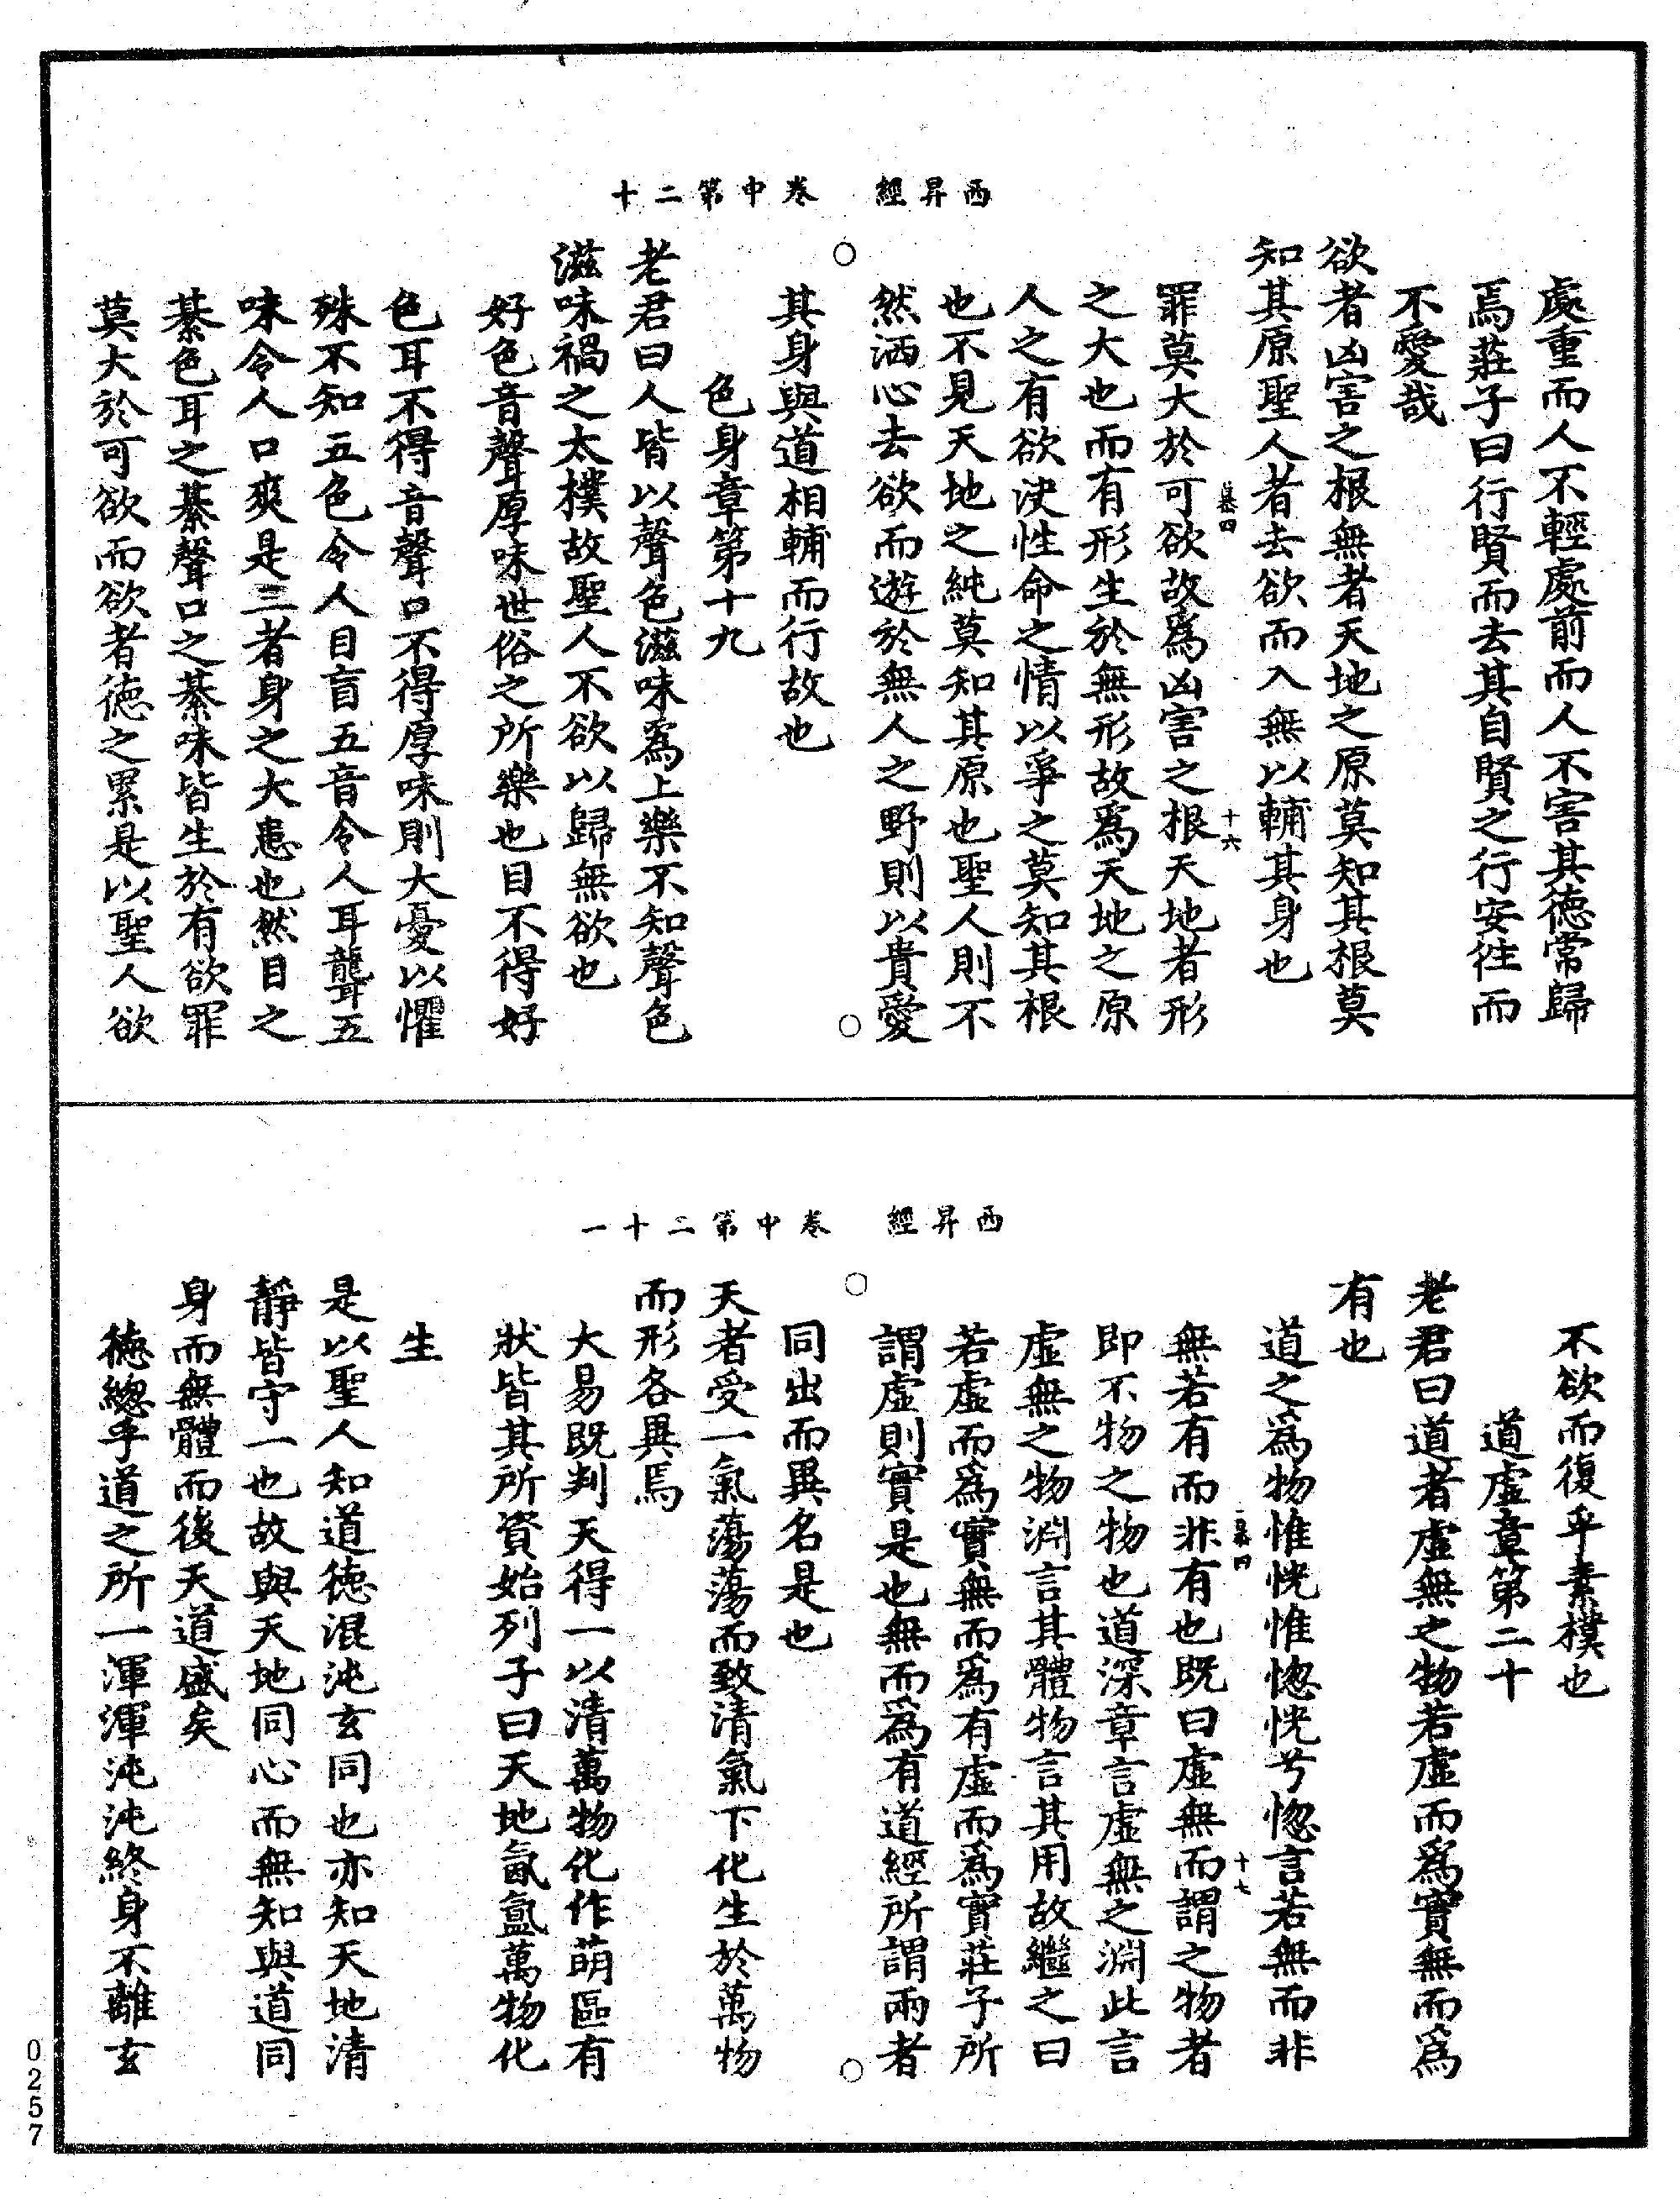 西昇經　卷中第二十
處重而人不輕處前而人不害其德常歸
焉莊子曰行賢而去其自賢之行安徃而
不愛哉
欲者凶害之根無者天地之原莫知其根莫
知其原聖人者去欲而入無以輔其身也
罪莫大於可欲故爲凶害之根天地者形
之大也而有形生於無形故爲天地之原
人之有欲決性命之情以爭之莫知其根
也不見天地之純莫知其原也聖人則不
然洒心去欲而遊於無人之野則以貴愛
其身與道相輔而行故也
色身章第十九
老君曰人皆以聲色滋味爲上樂不知聲色
滋味禍之太樸故聖人不欲以歸無欲也
好色音聲厚味世俗之所樂也目不得好
色耳不得音聲口不得厚味則大憂以懼
殊不知五色令人目盲五音令人耳聾五
味令人口爽是三者身之大患也然目之
綦色耳之綦聲口之綦味皆生於有欲罪
莫大於可欲而欲者德之累是以聖人欲
十六
西昇經　卷中第二十一
不欲而復乎素樸也
道虛章第二十
老君曰道者虛無之物若虛而爲實無而爲
有也
道之爲物惟恍惟惚恍兮惚言若無而非
無若有而非有也既曰虛無而謂之物者
即不物之物也道深章言虛無之淵此言
虛無之物淵言其體物言其用故繼之曰
若虛而爲實無而爲有虛而爲實莊子所
謂虛則實是也無而爲有道經所謂兩者
同出而異名是也
天者受一氣蕩蕩而致清氣下化生於萬物
而形各異焉
大易既判天得一以清萬物化作萌區有
狀皆其所資始列子曰天地氤氳萬物化
生
是以聖人知道德混沌玄同也亦知天地清
靜皆守一也故與天地同心而無知與道同
身而無體而後天道盛矣
德總乎道之所一渾渾沌沌終身不離玄
十七
0257